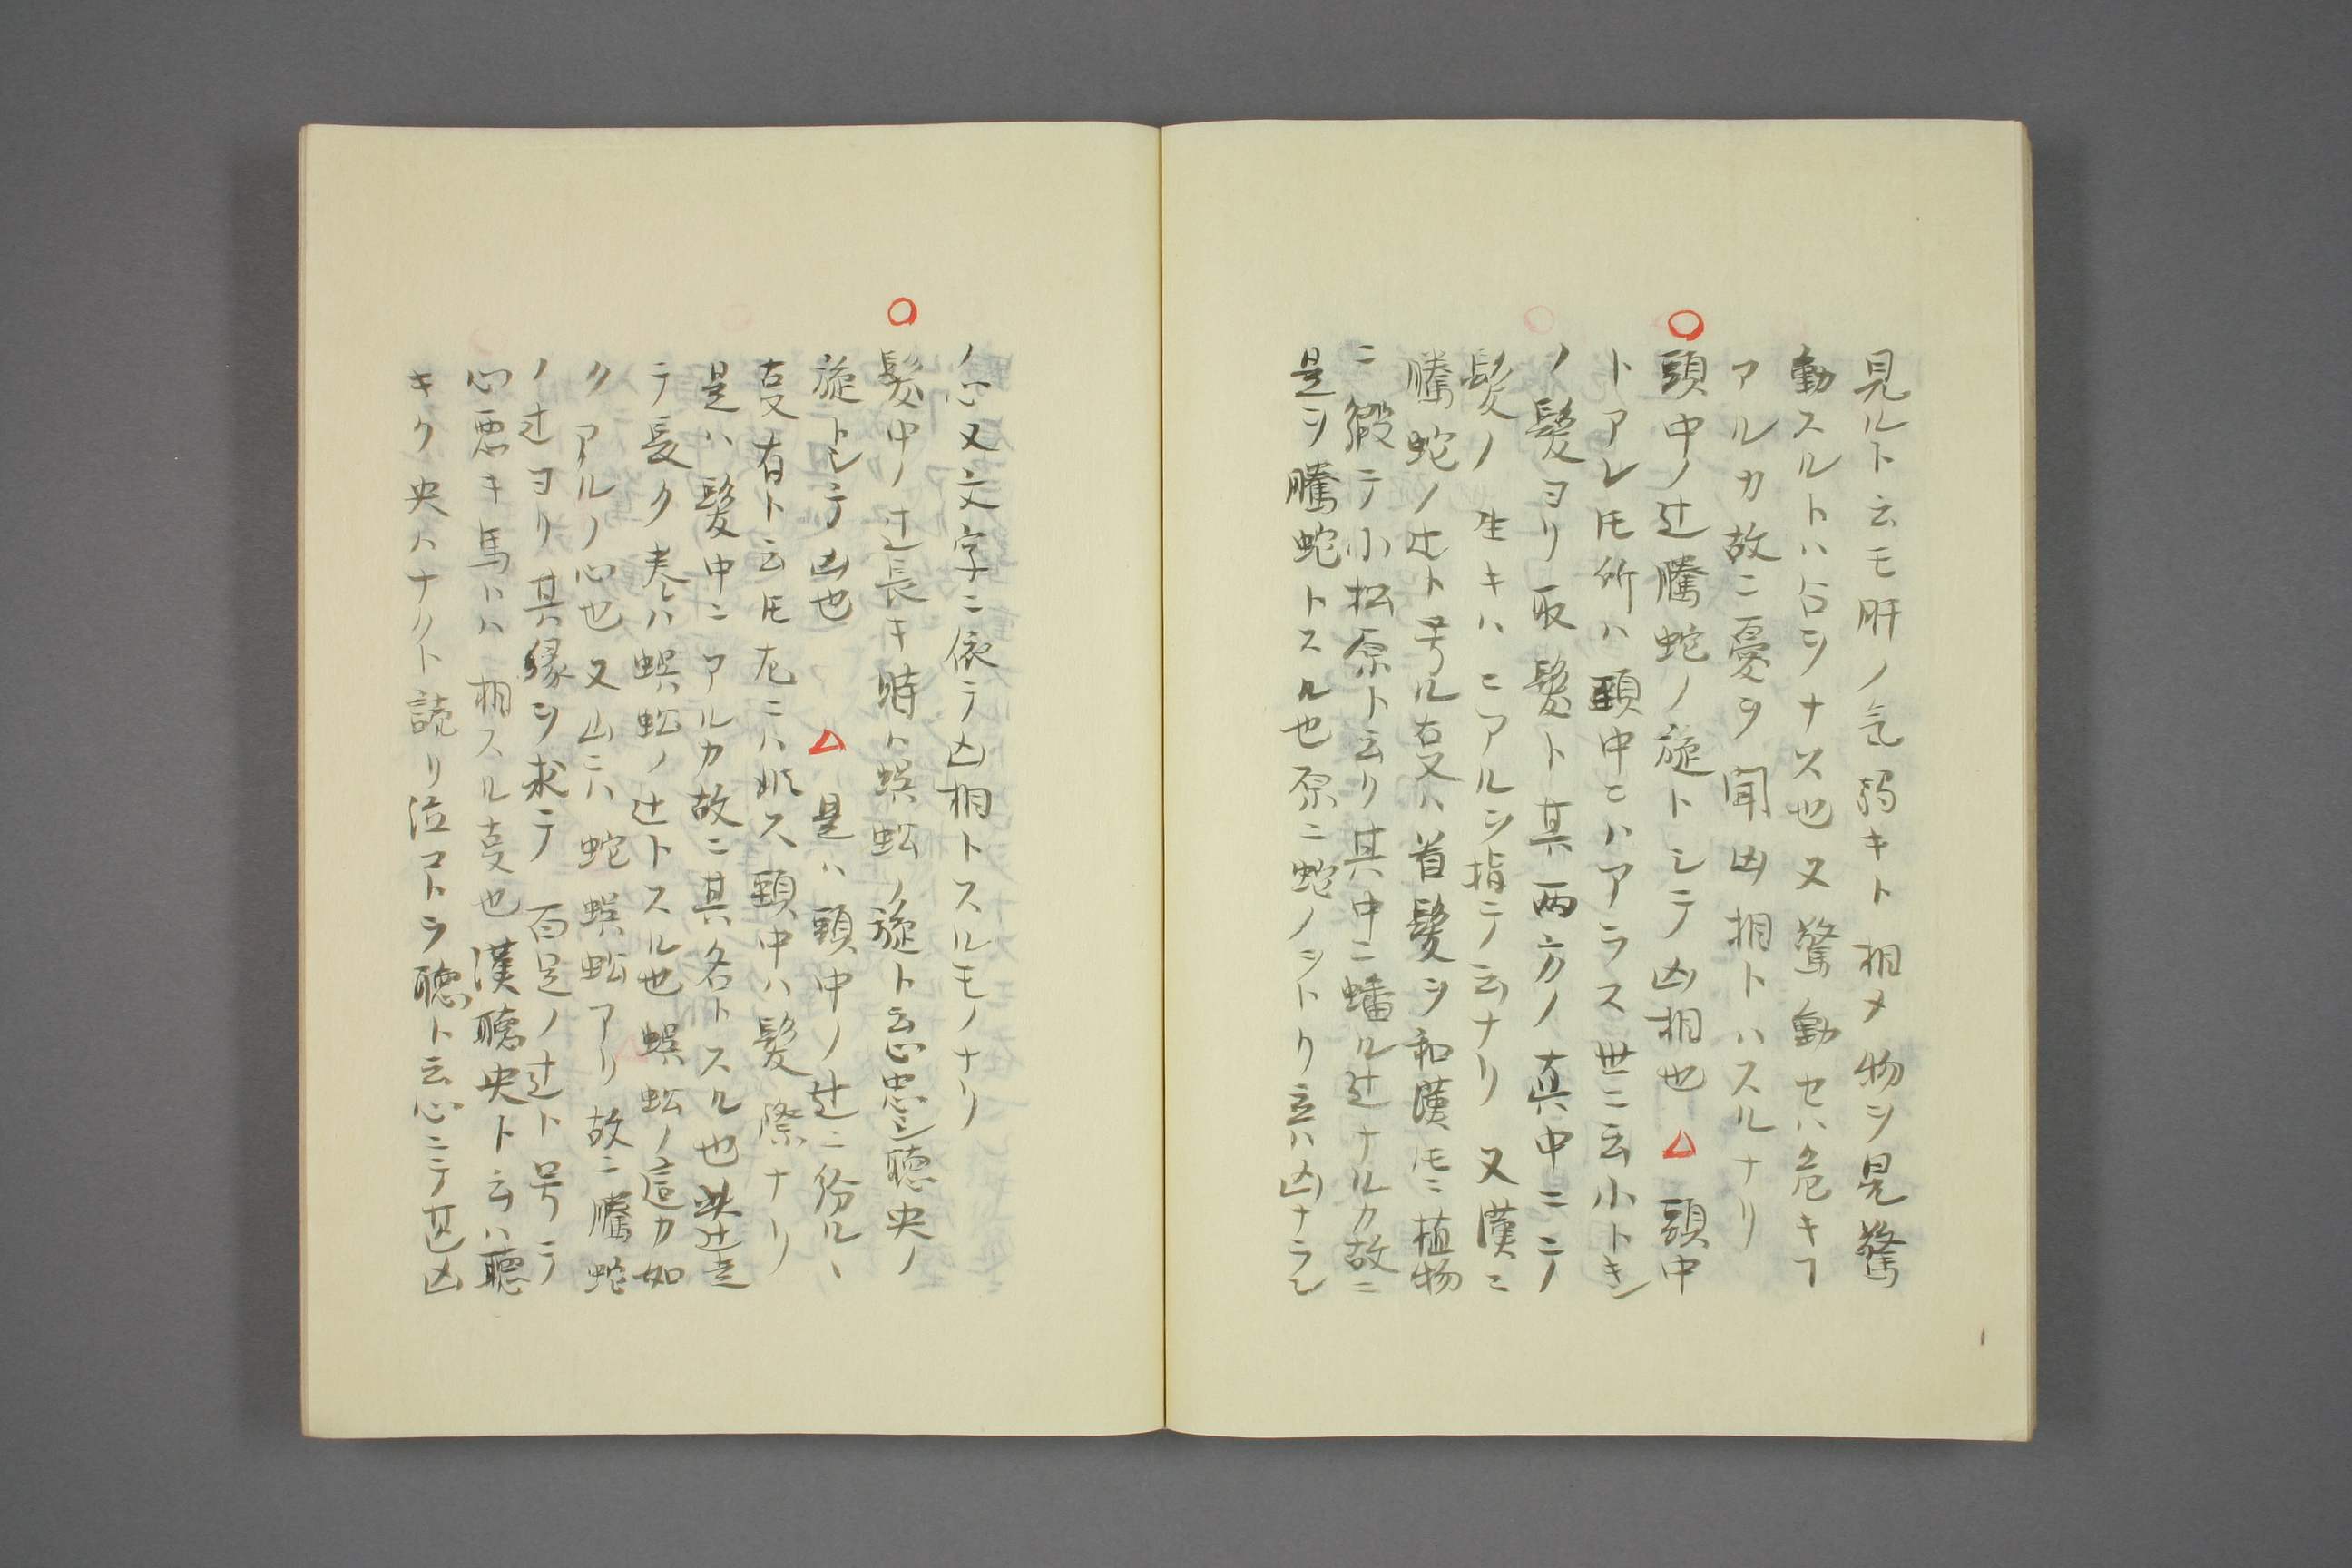 見ルト云モ肝ノ気弱キト相メ物ヲ見驚
動スルトハ谷ヲナス也又驚動セハ危キヿ
アルカ故ニ憂ヲ聞凶相トハスルナリ
○頭中ノ辻騰蛇ノ旋トシテ凶相也△頭中
トアレ𪜈所ハ頭中ニハアラス世ニ云小トキン
ノ髪ヨリ取髪ト其両方ノ真中ニニノ
髪ノ生キハニアルヲ指テ云ナリ又漢ニ
騰蛇ノ辻ト号ル叓ハ首髪ヲ和漢𪜈ニ植物
ニ綴テ小松原ト云リ其中ニ蟠ル辻ナルカ故ニ
是ヲ騰蛇トスル也原ニ蛇ノシトクニハ凶ナラシ
ノ心又文字ニ依テ凶相トスルモノナリ
○髪中ノ辻長キ時ハ蜈蚣ノ旋ト云心悪シ聴央ノ
旋トシテ凶也△是ハ頭中ノ辻ニ紛ルヽ
叓有ト云𪜈左ニハ非ス頭中ハ髪際ナリ
是ハ髪中ニアルカ故ニ其名トスル也此辻走
テ長ク巻ハ蜈蚣ノ辻トスル也蜈蚣ノ這カ如
クアルノ心也又山ニハ蛇蜈蚣アリ故ニ騰蛇
ノ辻ヨリ其縁ヲ求テ百足ノ辻ト号テ
心悪キ馬トハ相スル叓也漢聴央ト云ハ聴
キク央ハナクト読リ泣コトヲ聴ト云心ニテ甚凶